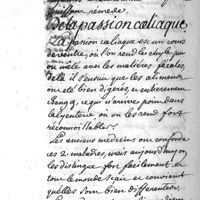 quelque remede
De la passion cæliaque
La passion cæliaque est un cours
de ventre, ou l'on rend le chyle pur
ou mêlé avec les matieres fécales,
de là il s'ensuit que les alimens
ont été bien digérés, et
changés, ce qui n'arrive point dans
la lyenterie ou on les rend fort
reconnoissables.
Les anciens medecins ont confondu
ces 2 maladies, mais aujourd'huy on
les distingue fort facilement, et
tout le monde sçait et convient
qu'elles sont bien differentes.